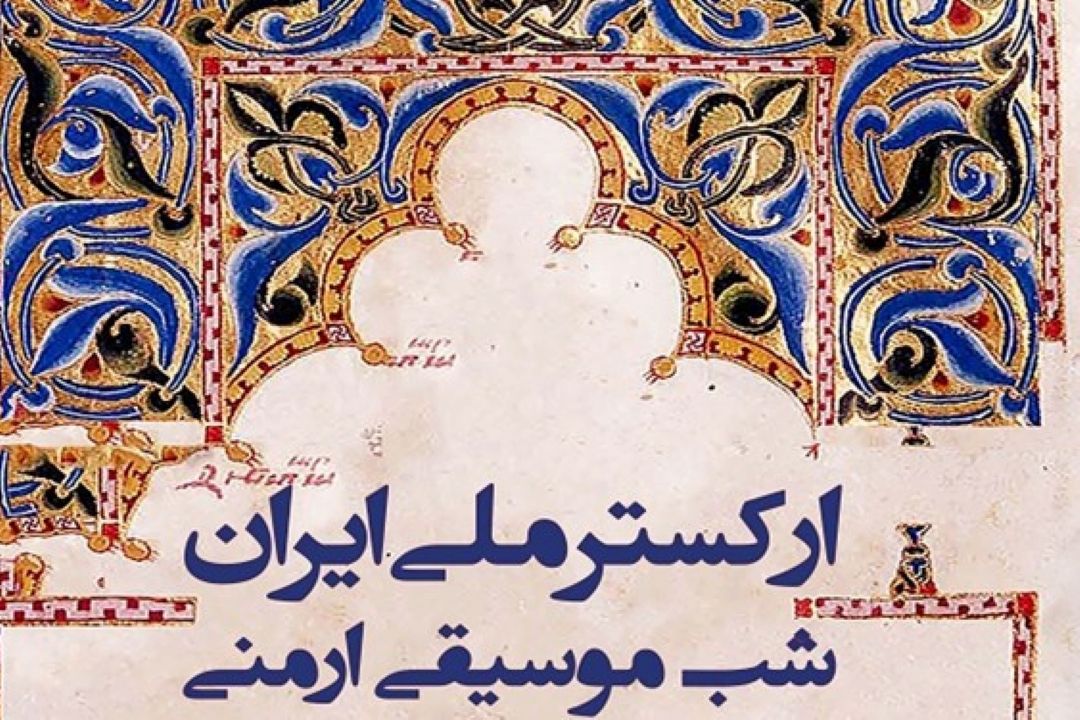 ارکستر ملی ایران
شب موسیقی ارمنی